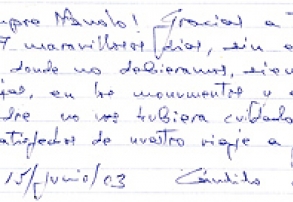 mpre Manolo! Gracias a
7 maravillosos días, sin
donde no debieramos, sie
en los monumentos y
no nos hubiera cuidado
atisfechos de nuestro viaje a
15/Junio/03 Cándido